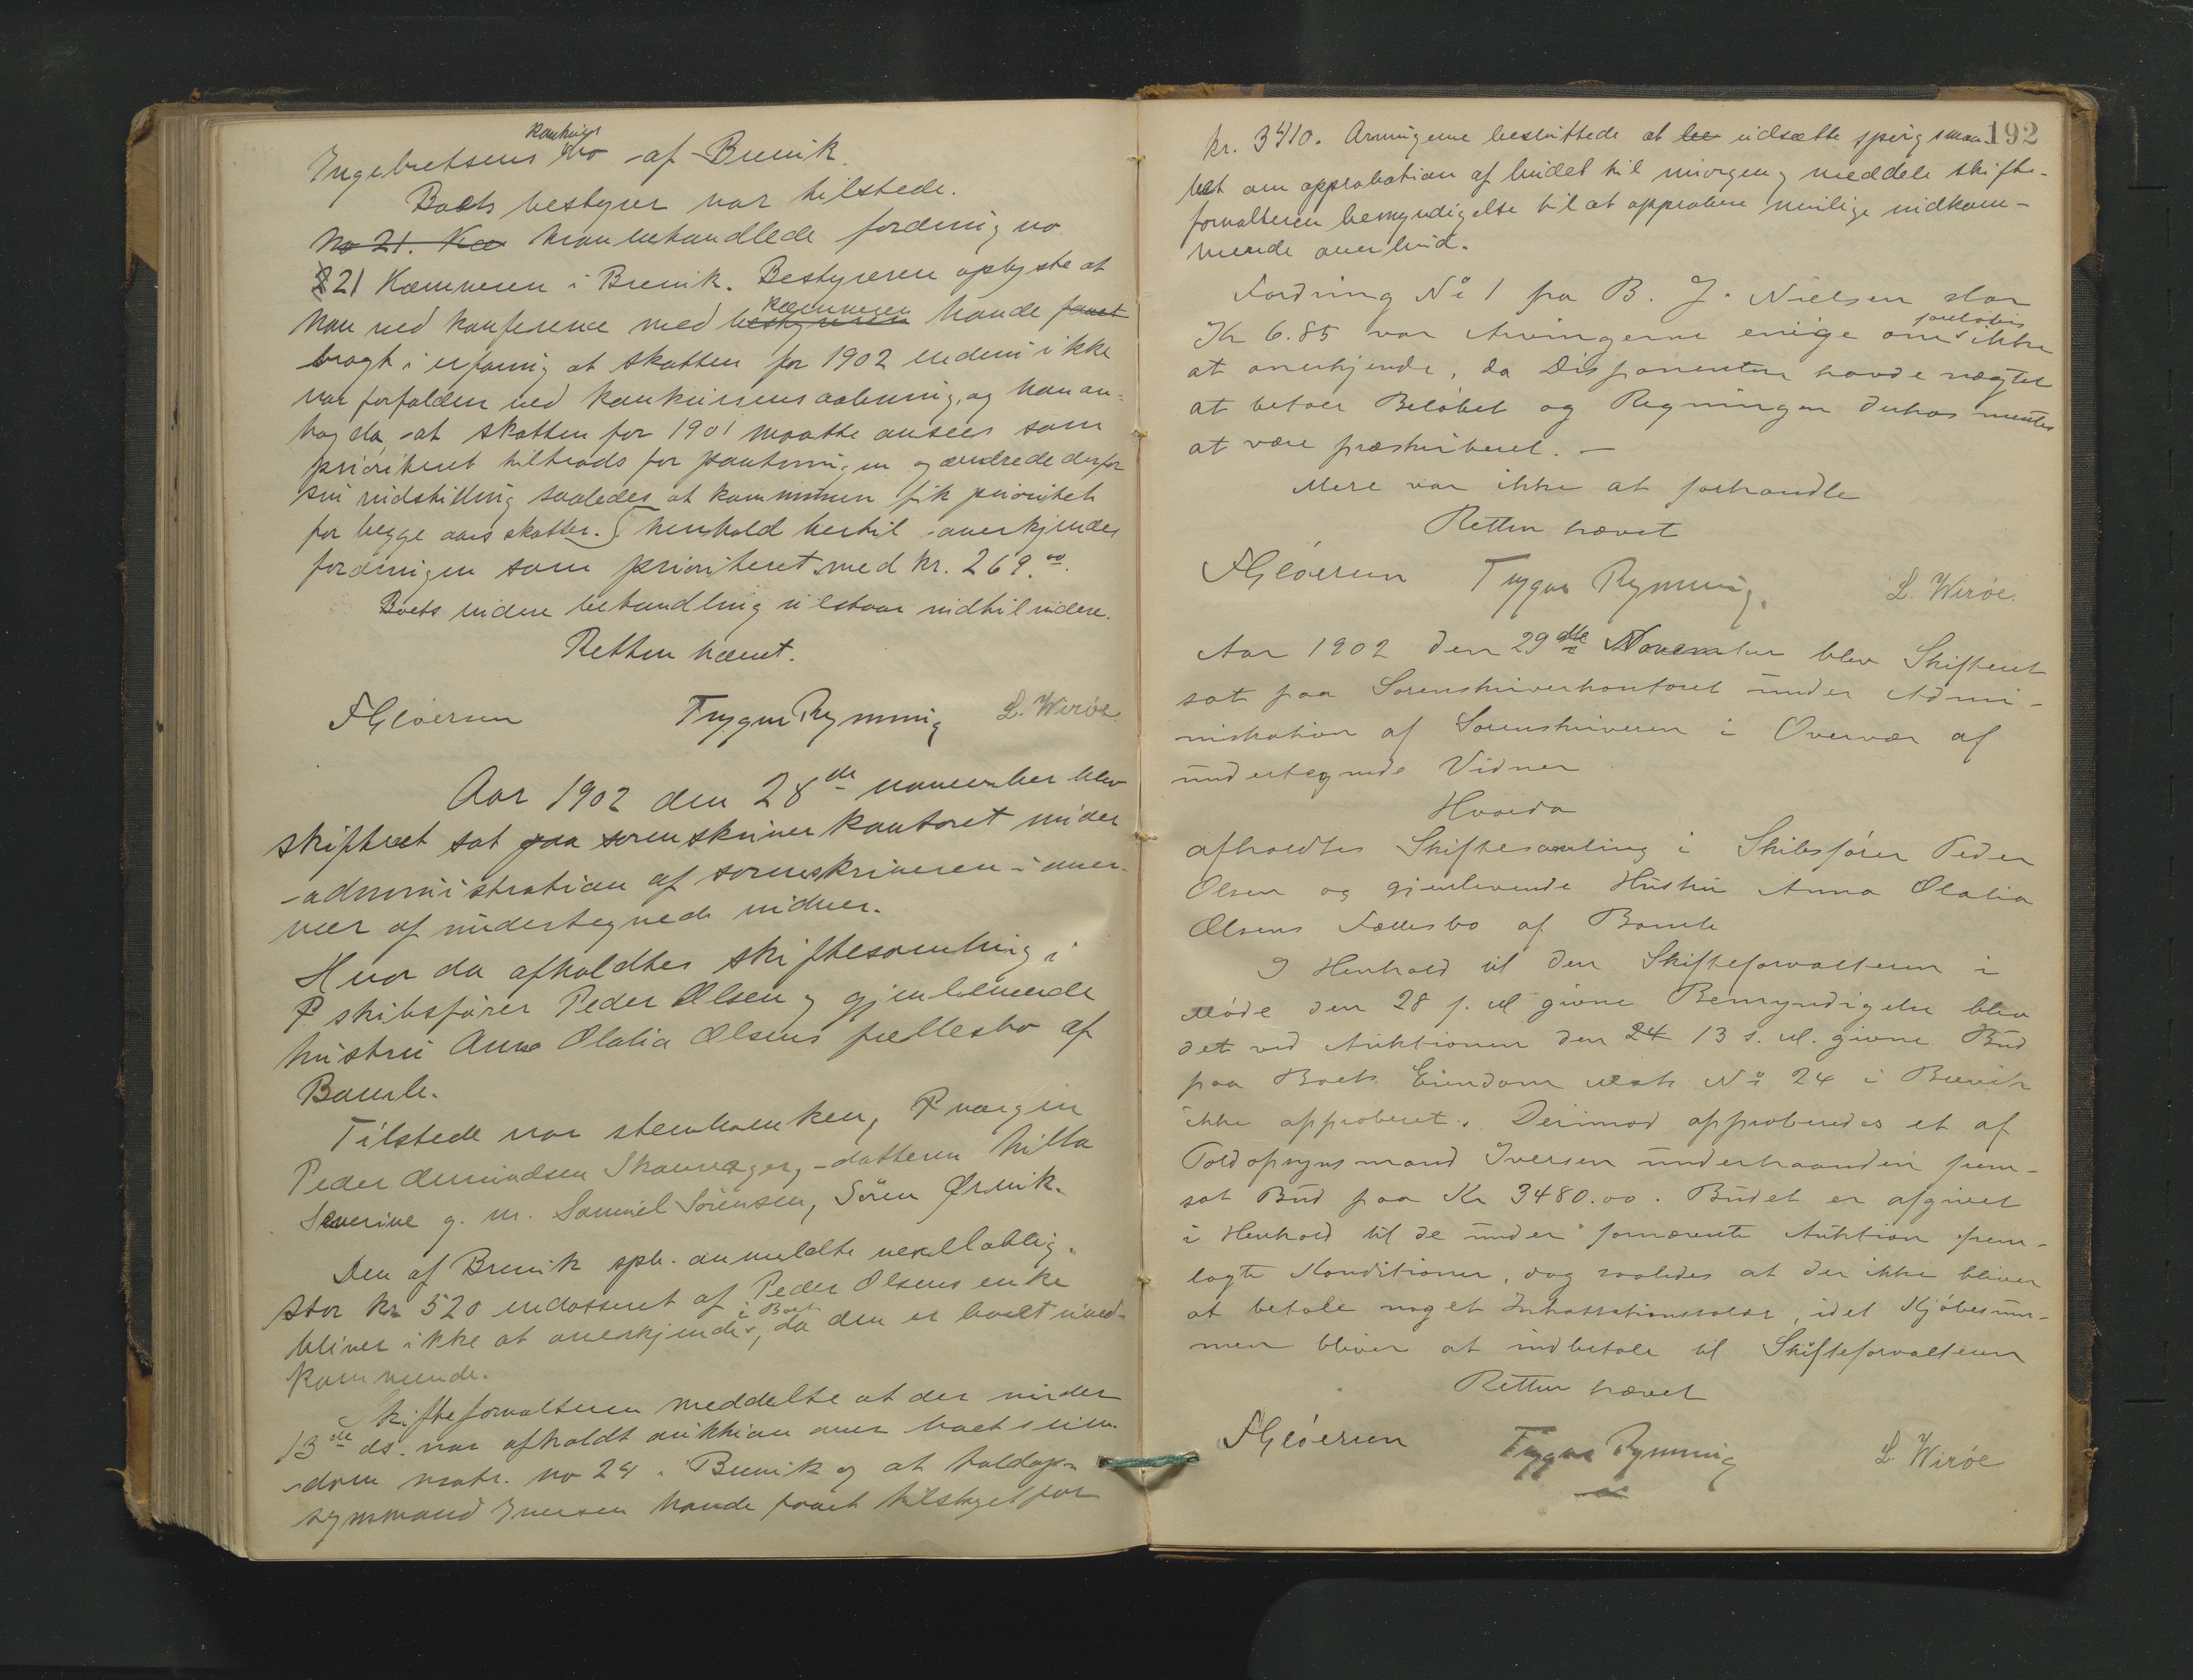 Ingebretsens konkursbo af Brevik.
Boets bestyrer var tilstede.
No 21. Kæ Man behandlede fordring no
21 Kæmneren i Brevik. Bestyreren oplyste at
han ved konference med bestyreren kæmneren havde faaet
bragt i erfaring at skatten for 1902 endnu ikke
var forfalden ved konkursens aabning, og han an-
tog da at skatten for 1901 maatte ansees som
prioriteret tiltrods for pantningen og ændrede derfor
sin indstilling saaledes at kommunen fik prioritet
for begge aars skatter. I henhold hertil anerkjendes
fordringen som prioriteret med kr. 269.00.
Boets videre behandling udstaar indtil videre.
Retten hævet.
FGløersen Trygve Rynning L. Wirøe.
Aar 1902 den 28de november blev
skifteret sat paa sorenskriverkontoret under
administration af sorenskriveren i over-
vær af undertegnede vidner.
Hvor da afholdtes skiftesamling i
skibsfører Peder Olsen og gjenlevende
hustru Anna Olalia Olsens fællesbo af
Bamle.
Tilstede var sterbenken, værgen
Peder Amundsen Skavrager, datteren Milla
Severine g. m. Samuel Sørensen, Søren Ørvik.
Den af Brevik spb. anmeldte vexelloblig.
stor kr 520 endosseret af Peder Olsens enke
bliver ikke at anerkjende i Boet, da den er boet uved-
kommende.
Skifteforvalteren meddelte at der under
13de ds. var afholdt auktion over boets eien-
dom matr. no 24 i Brevik og at toldop-
synsmand Iversen havde faaet tilslaget for
192
kr. 3410. Arvingerne besluttede at udsætte spørgsmaa-
let om approbation af budet til imorgen og meddele skifte-
forvalteren bemyndigelse til at approbere mulige indkom-
mende overbud.
Fordring No 1 fra B. J. Nielsen stor
Kr 6.85 var Arvingerne enige om foreløbig ikke
at anerkjende, da Disponenten havde nægtet
at betale Beløbet og Regningen derhos mentes
at være præskriberet. —
Mere var ikke at forhandle
Retten hævet
FGløersen Trygve Rynning. L. Wirøe.
Aar 1902 den 29de November blev Skifteret
sat paa Sorenskriverkontoret under Admi-
nistration af Sorenskriveren i Overvær af
undertegnede Vidner
Hvorda
afholdtes Skiftesamling i Skibsfører Peder
Olsen og gjenlevende Hustru Anna Olalia
Olsens Fællesbo af Bamle
I Henhold til den Skifteforvalteren i
Møde den 28 f. M givne Bemyndigelse blev
det ved Auktionen den 24 13 s. M. givne Bud
paa Boets Eiendom Matr No 24 i Brevik
ikke approberet. Derimod approberedes et af
Toldopsynsmand Iversen underhaanden frem-
sat Bud paa Kr 3480.00. Budet er afgivet
i Henhold til de under fornævnte Auktion frem-
lagte Konditioner, dog saaledes at der ikke bliver
at betale noget Inkassationssalær, idet Kjøbesum-
men bliver at indbetale til Skifteforvalteren
Retten hævet
FGløersen Trygve Rynning L. Wirøe